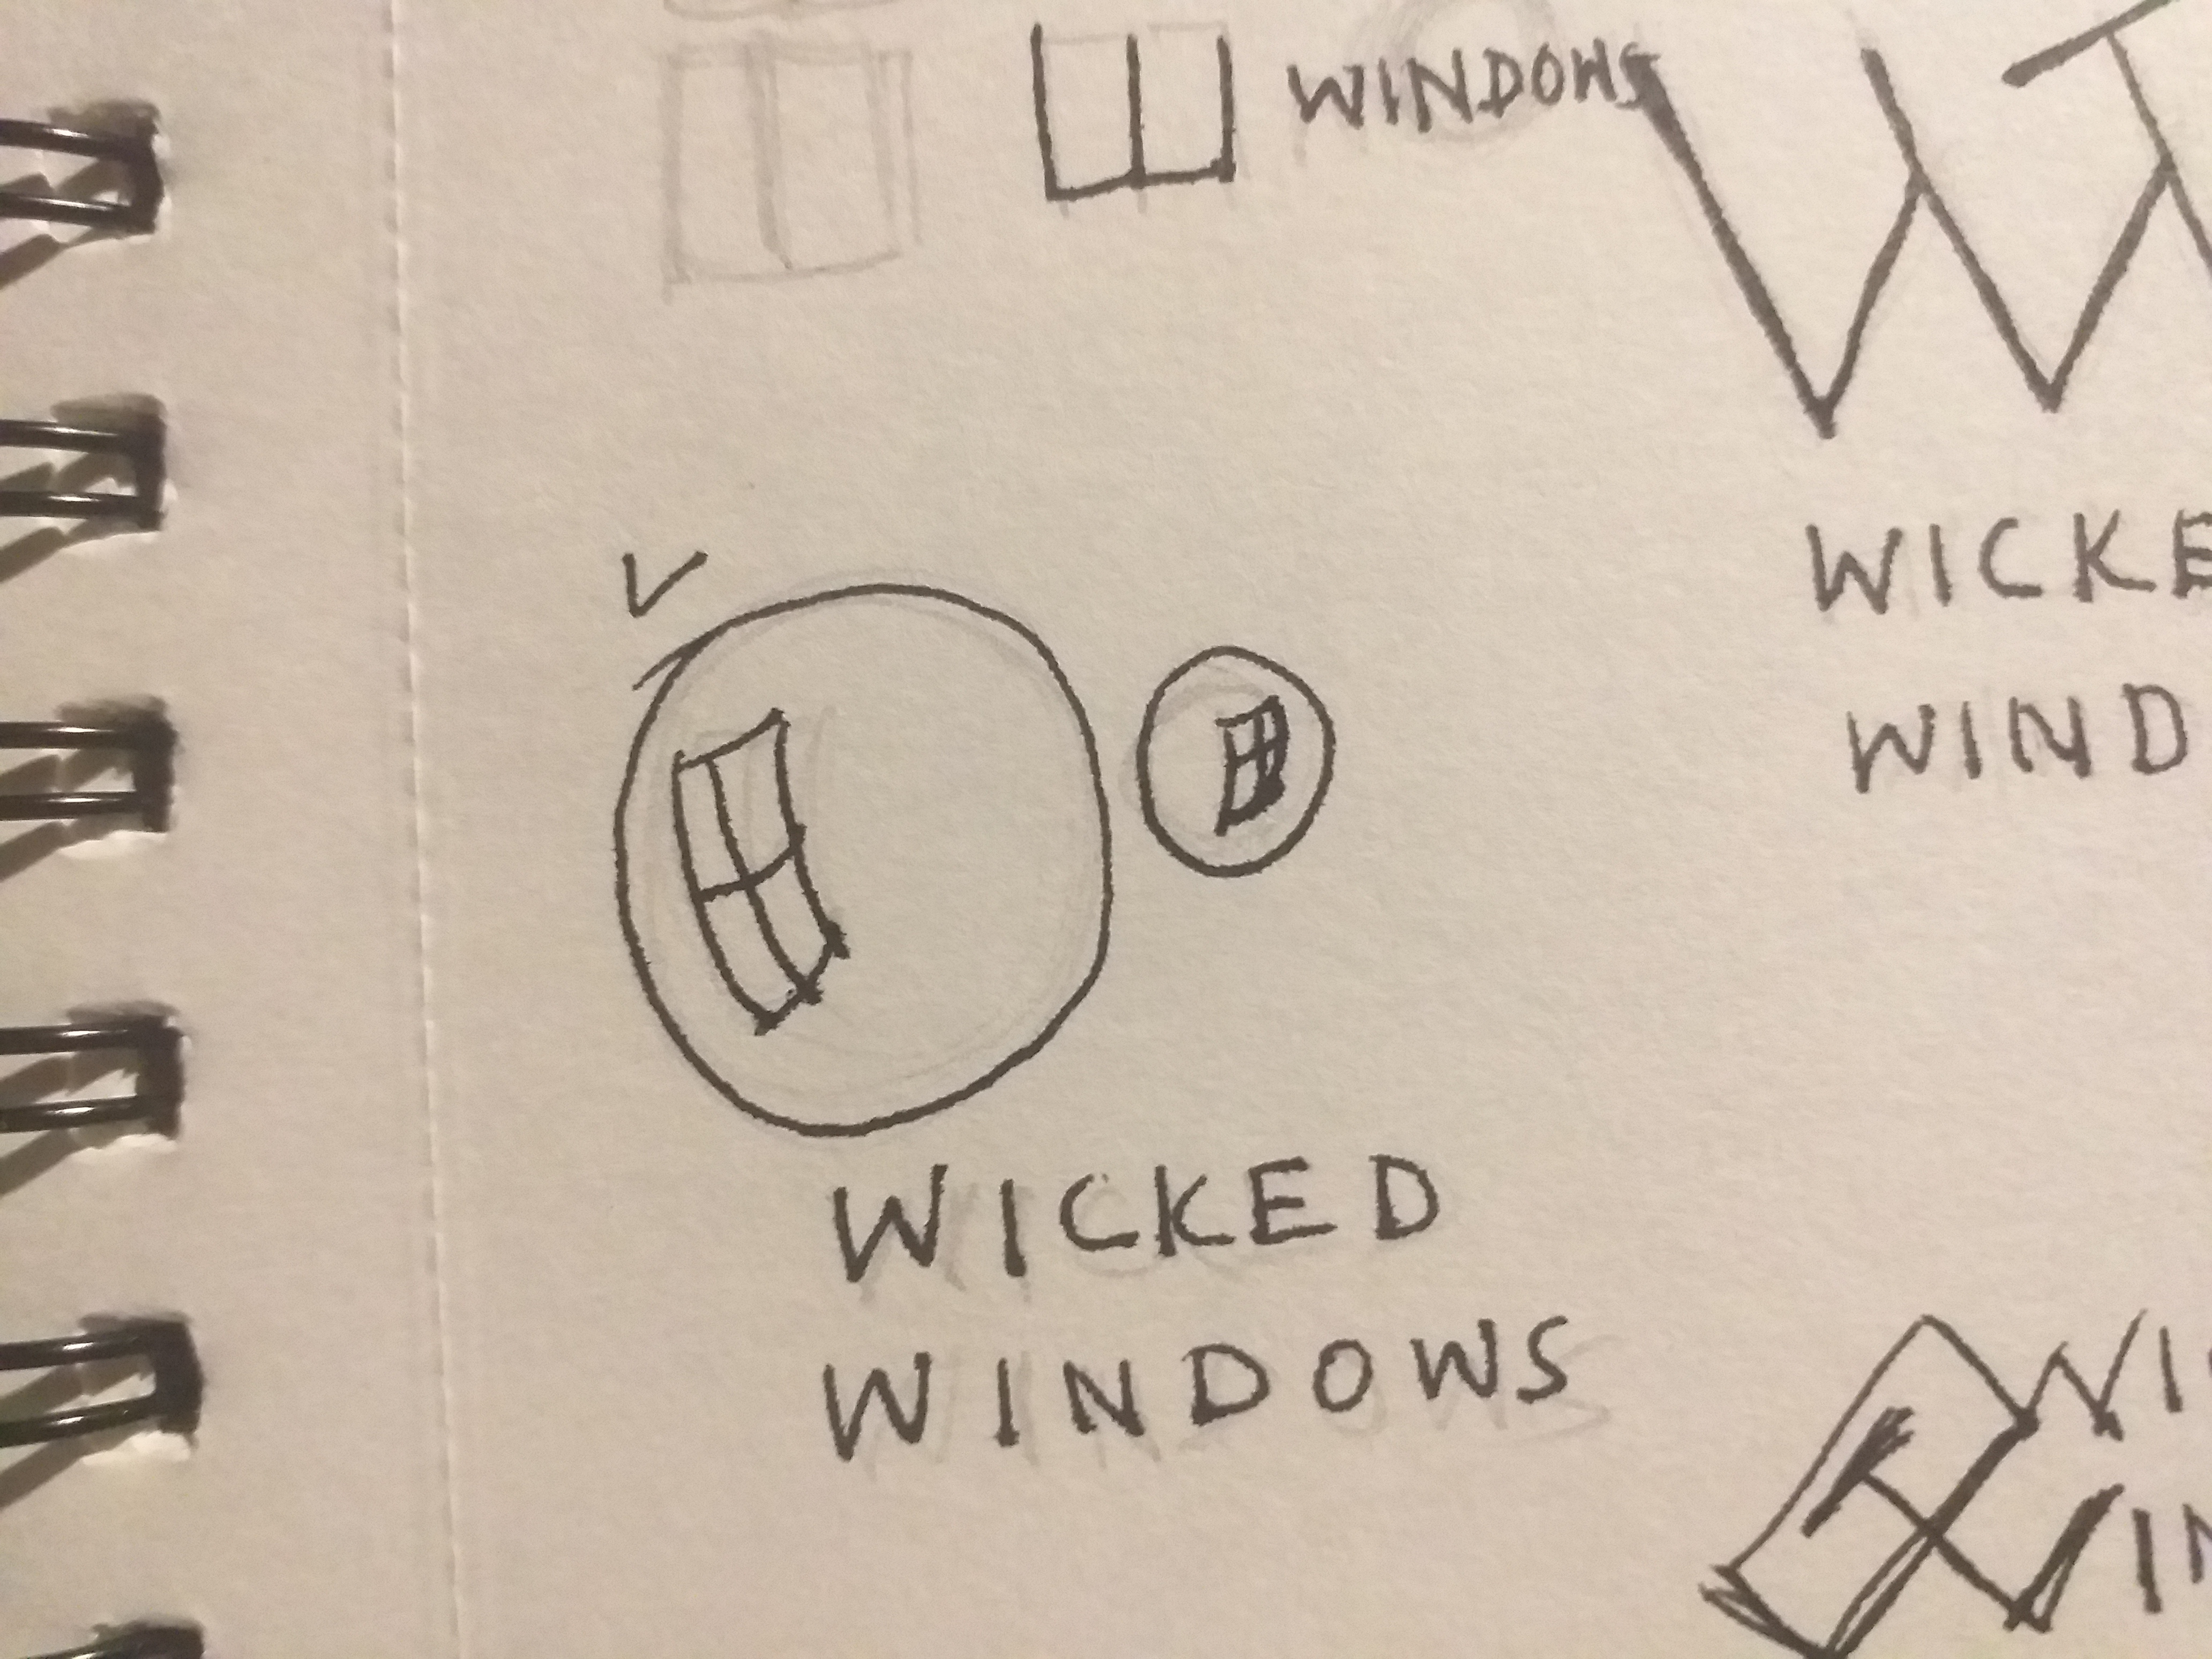 WINDOWS
W
WICKE
WIND
WICKED
WINDOWS
WI
WIN